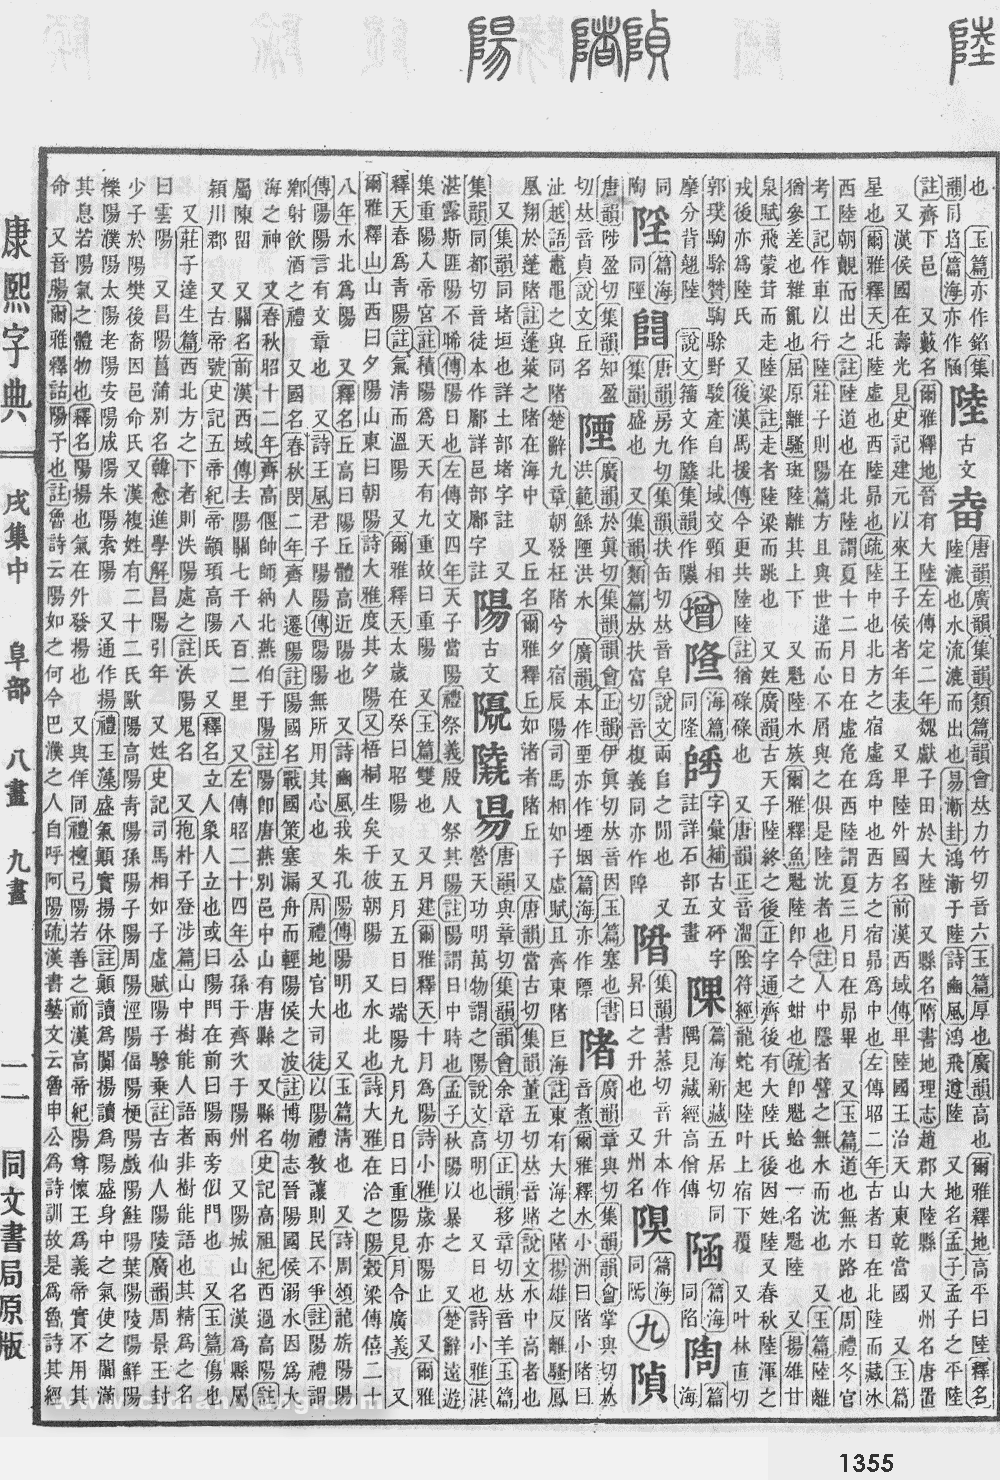 陽 陼 隕 陸
也 玉篇亦作
韻同埳篇海亦作
陸 古文
唐韻廣韻集韻類篇韻會𠀤力竹切音六玉篇厚也廣韻高也爾雅釋地高平曰陸釋名
陸漉也水流漉而出也易漸卦鴻漸于陸詩豳風鴻飛遵陸 又地名孟子孟子之平陸
註齊下邑 又藪名爾雅釋地晉有大陸左傳定二年魏獻子田於大陸 又縣名隋書地理志趙郡大陸縣 又州名唐置
又漢侯國在壽光見史記建元以來王子侯者年表 又𤰞陸外國名前漢西域傳𤰞陸國王治天山東乾當國 又玉篇
星也爾雅釋天北陸虛也西陸昴也疏陸中也北方之宿虛爲中也西方之宿昴爲中也左傳昭二年古者日在北陸而藏冰
西陸朝覿而出之註陸道也在北陸謂夏十二月日在虛危在西陸謂夏三月日在昴畢 又玉篇道也無水路也周禮冬官
考工記作車以行陸莊子則陽篇方且與世違而心不屑與之俱是陸沈者也註人中隱者譬之無水而沈也 又玉篇陸離
猶參差也雜亂也屈原離騷斑陸離其上下 又魁陸水族爾雅釋魚魁陸卽今之蚶也疏卽魁蛤也一名魁陸 又揚雄甘
泉賦飛蒙茸而走陸梁註走者陸梁而跳也 又姓廣韻古天子陸終之後正字通齊後有大陸氏後因姓陸又春秋陸渾之
戎後亦爲陸氏 又後漢馬援傳今更共陸陸註猶碌碌也 又唐韻正音溜陰符經龍蛇起陸叶上宿下覆 又叶林直切
郭璞駒駼贊駒駼野駿產自北域交頸相
摩分背翹陸 說文籀文作集韻作
增 隓 海篇同隆
字彙補古文砰字
註詳石部五畫
篇海新藏五居切同
隅見藏經高僧傳
篇海同陷
陶 篇海
同陶
篇海同陻
唐韻房九切集韻扶缶切𠀤音阜說文兩自之閒也 又
集韻盛也 又集韻類篇𠀤扶富切音複義同亦作
集韻書蒸切音升本作
昇日之升也 又州名
篇海同
九
隕
唐韻陟盈切集韻知盈
切𠀤音貞說文丘名
陻
廣韻於眞切集韻韻會正韻伊眞切𠀤音因玉篇塞也書
洪範鯀陻洪水 廣韻本作垔亦作堙篇海亦作
陼
廣韻章與切集韻韻會掌與切𠀤
音煮爾雅釋水小洲曰陼小陼曰
沚越語黿鼉之與同陼楚辭九章朝發枉陼兮夕宿辰陽司馬相如子虛賦且齊東陼巨海註東有大海之陼揚雄反離騷鳳
凰翔於蓬陼註蓬萊之陼在海中 又丘名爾雅釋丘如渚者陼丘 又唐韻當古切集韻董五切𠀤音睹說文水中高者也
又集韻同堵垣也詳土部堵字註 又
集韻同都切音徒本作鄌詳邑部鄌字註
陽
古文
唐韻與章切集韻韻會余章切正韻移章切𠀤音羊玉篇
營天功明萬物謂之陽說文高明也 又日也詩小雅湛
湛露斯匪陽不晞傳陽日也左傳文四年天子當陽禮祭義殷人祭其陽註陽謂日中時也孟子秋陽以暴之 又楚辭遠遊
集重陽入帝宮註積陽爲天天有九重故曰重陽 又玉篇雙也 又月建爾雅釋天十月爲陽詩小雅歲亦陽止 又爾雅
釋天春爲靑陽註氣淸而溫陽 又爾雅釋天太歲在癸曰昭陽 又五月五日曰端陽九月九日曰重陽見月令廣義 又
爾雅釋山山西曰夕陽山東曰朝陽詩大雅度其夕陽又梧桐生矣于彼朝陽 又水北也詩大雅在洽之陽穀梁傳僖二十
八年水北爲陽 又釋名丘高曰陽丘體高近陽也 又詩豳風我朱孔陽傳陽明也 又玉篇淸也 又詩周頌龍旂陽陽
傳陽陽言有文章也 又詩王風君子陽陽傳陽陽無所用其心也 又周禮地官大司徒以陽禮敎讓則民不爭註陽禮謂
鄕射飮酒之禮 又國名春秋閔二年齊人遷陽註陽國名戰國策塞漏舟而輕陽侯之波註博物志晉陽國侯溺水因爲大
海之神 又春秋昭十二年齊高偃帥師納北燕伯于陽註陽卽唐燕別邑中山有唐縣 又縣名史記高祖紀西過高陽註
屬陳留 又關名前漢西域傳去陽關七千八百二里 又左傳昭二十四年公孫于齊次于陽州 又陽城山名漢爲縣屬
潁川郡 又古帝號史記五帝紀帝顓頊高陽氏 又釋名立人象人立也或曰陽門在前曰陽兩旁似門也 又玉篇傷也
又莊子達生篇西北方之下者則泆陽處之註泆陽鬼名 又抱朴子登涉篇山中樹能人語者非樹能語也其精爲之名
曰雲陽 又昌陽菖蒲別名韓愈進學解昌陽引年 又姓史記司馬相如子虛賦陽子驂乘註古仙人陽陵廣韻周景王封
少子於陽樊後裔因邑命氏又漢複姓有二十三氏歐陽高陽靑陽孫陽子陽周陽涇陽偪陽梗陽戲陽鮭陽葉陽陵陽鮮陽
櫟陽濮陽太陽老陽安陽成陽朱陽索陽 又通作揚禮玉藻盛氣顚實揚休註顚讀爲闐揚讀爲陽盛身中之氣使之闐滿
其息若陽氣之體物也釋名陽揚也氣在外發揚也 又與佯同禮檀弓陽若善之前漢高帝紀陽尊懷王爲義帝實不用其
命 又音賜爾雅釋詁陽予也註魯詩云陽如之何今巴濮之人自呼阿陽疏漢書藝文云魯申公爲詩訓故是爲魯詩其經
康熙字典
戌集中 阜部 八畫 九畫
一一
同文書局原版
1355